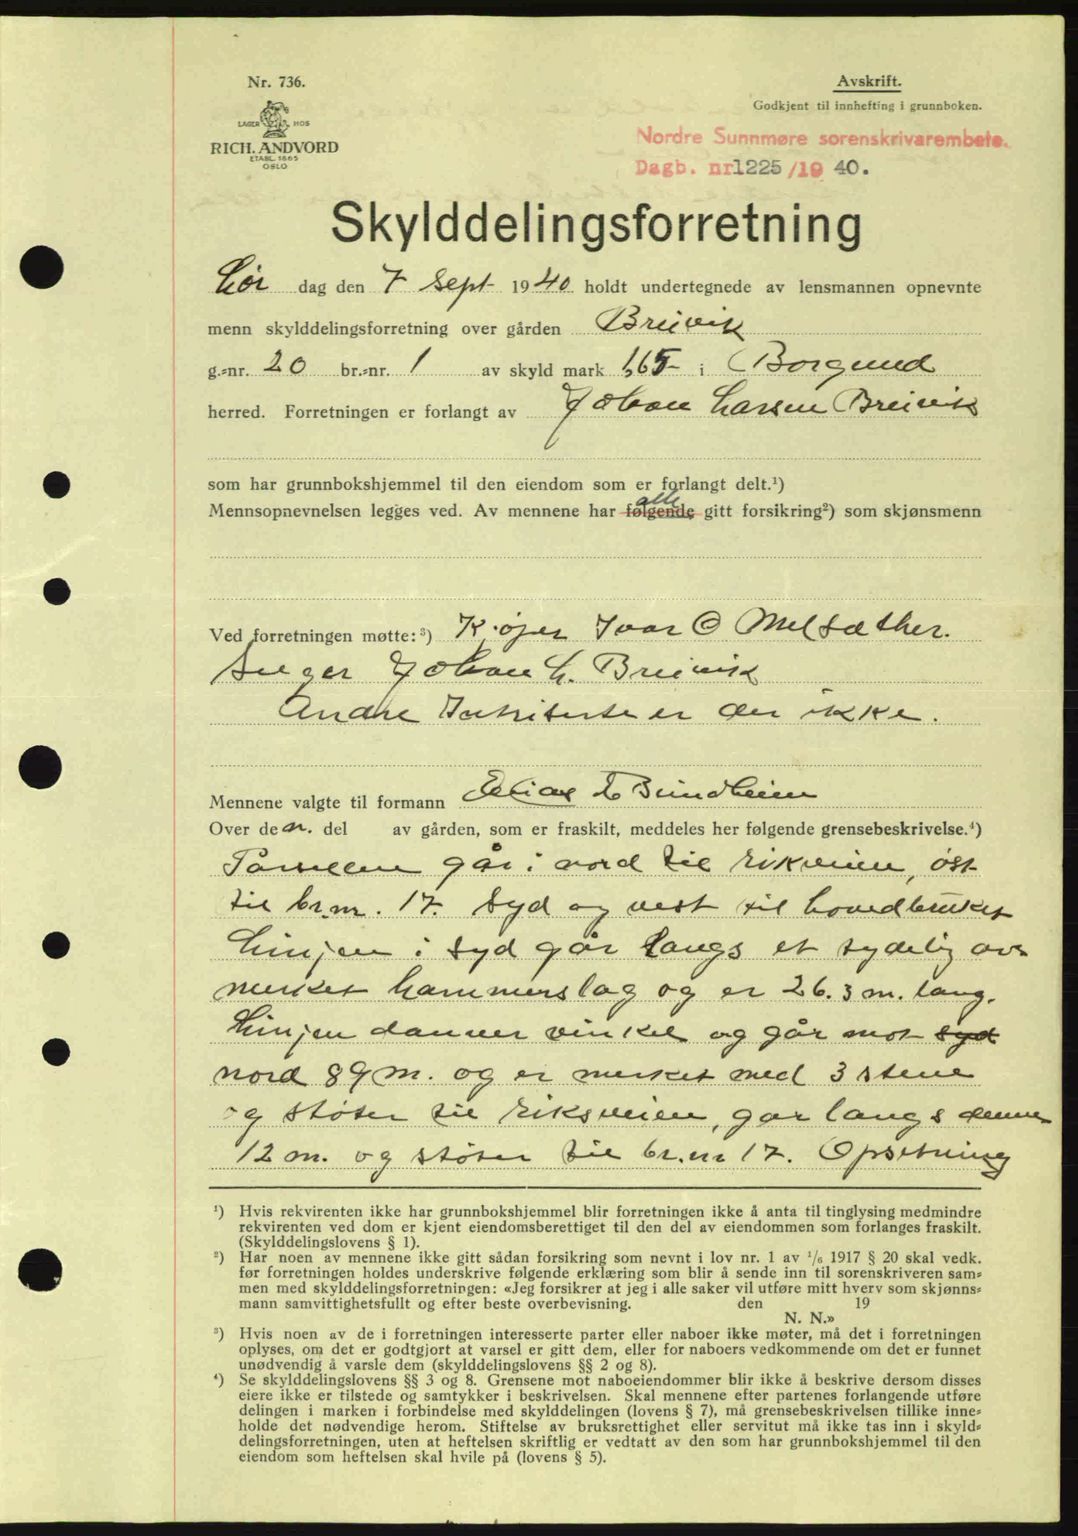 Nr. 736.
Avskrift.
Godkjent til innhefting i grunnboken.
LAGER HOS
RICH. ANDVORD
ETABL. 1865
OSLO
Nordre Sunnmøre sorenskrivarembete.
Dagb. nr 1225 / 19 40.
Skylddelingsforretning
Lør dag den 7 Sept 1940 holdt undertegnede av lensmannen opnevnte
menn skylddelingsforretning over gården Breivik
g.-nr. 20 br.-nr. 1 av skyld mark 1,65- i Borgund
herred. Forretningen er forlangt av Johan Larsen Breivik
som har grunnbokshjemmel til den eiendom som er forlangt delt.¹)
alle
Mennsopnevnelsen legges ved. Av mennene har følgende gitt forsikring²) som skjønsmenn
Ved forretningen møtte:³) Kjøper Ivar O Melsæther.
Selger Johan L. Breivik
Andre Interiserte er der ikke.
Mennene valgte til formann Elias Bundheim
Over den. del av gården, som er fraskilt, meddeles her følgende grensebeskrivelse.⁴)
Parsellen går i nord til rikveien, øst
til br.nr. 17. Syd og vest til hovedbruket
Linjen i syd går langs et tydelig av-
merket hammerslag og er 26.3 m. lang.
Linjen danner vinkel og går mot syd
nord 89 m. og er merket med 3 stene
og støter til riksveien, går langs denne
12 m. og støter til br.nr 17. Opsetning
¹) Hvis rekvirenten ikke har grunnbokshjemmel blir forretningen ikke å anta til tinglysing medmindre
rekvirenten ved dom er kjent eiendomsberettiget til den del av eiendommen som forlanges fraskilt.
(Skylddelingslovens § 1).
²) Har noen av mennene ikke gitt sådan forsikring som nevnt i lov nr. 1 av ¹/₆ 1917 § 20 skal vedk.
før forretningen holdes underskrive følgende erklæring som blir å sende inn til sorenskriveren sam-
men med skylddelingsforretningen: «Jeg forsikrer at jeg i alle saker vil utføre mitt hverv som skjønns-
mann samvittighetsfullt og efter beste overbevisning. den 19
N. N.»
³) Hvis noen av de i forretningen interesserte parter eller naboer ikke møter, må det i forretningen
oplyses, om det er godtgjort at varsel er gitt dem, eller for naboers vedkommende om det er funnet
unødvendig å varsle dem (skylddelingslovens §§ 2 og 8).
⁴) Se skylddelingslovens §§ 3 og 8. Grensene mot naboeiendommer blir ikke å beskrive dersom disses
eiere ikke er tilstede og samtykker i beskrivelsen. Skal mennene efter partenes forlangende utføre
delingen i marken i forbindelse med skylddelingen (lovens § 7), må grensebeskrivelsen tillike inne-
holde det nødvendige herom. Stiftelse av bruksrettighet eller servitut må ikke tas inn i skyld-
delingsforretningen, uten at heftelsen skriftlig er vedtatt av den som har grunnbokshjemmel til den
eiendom som heftelsen skal hvile på (lovens § 5).